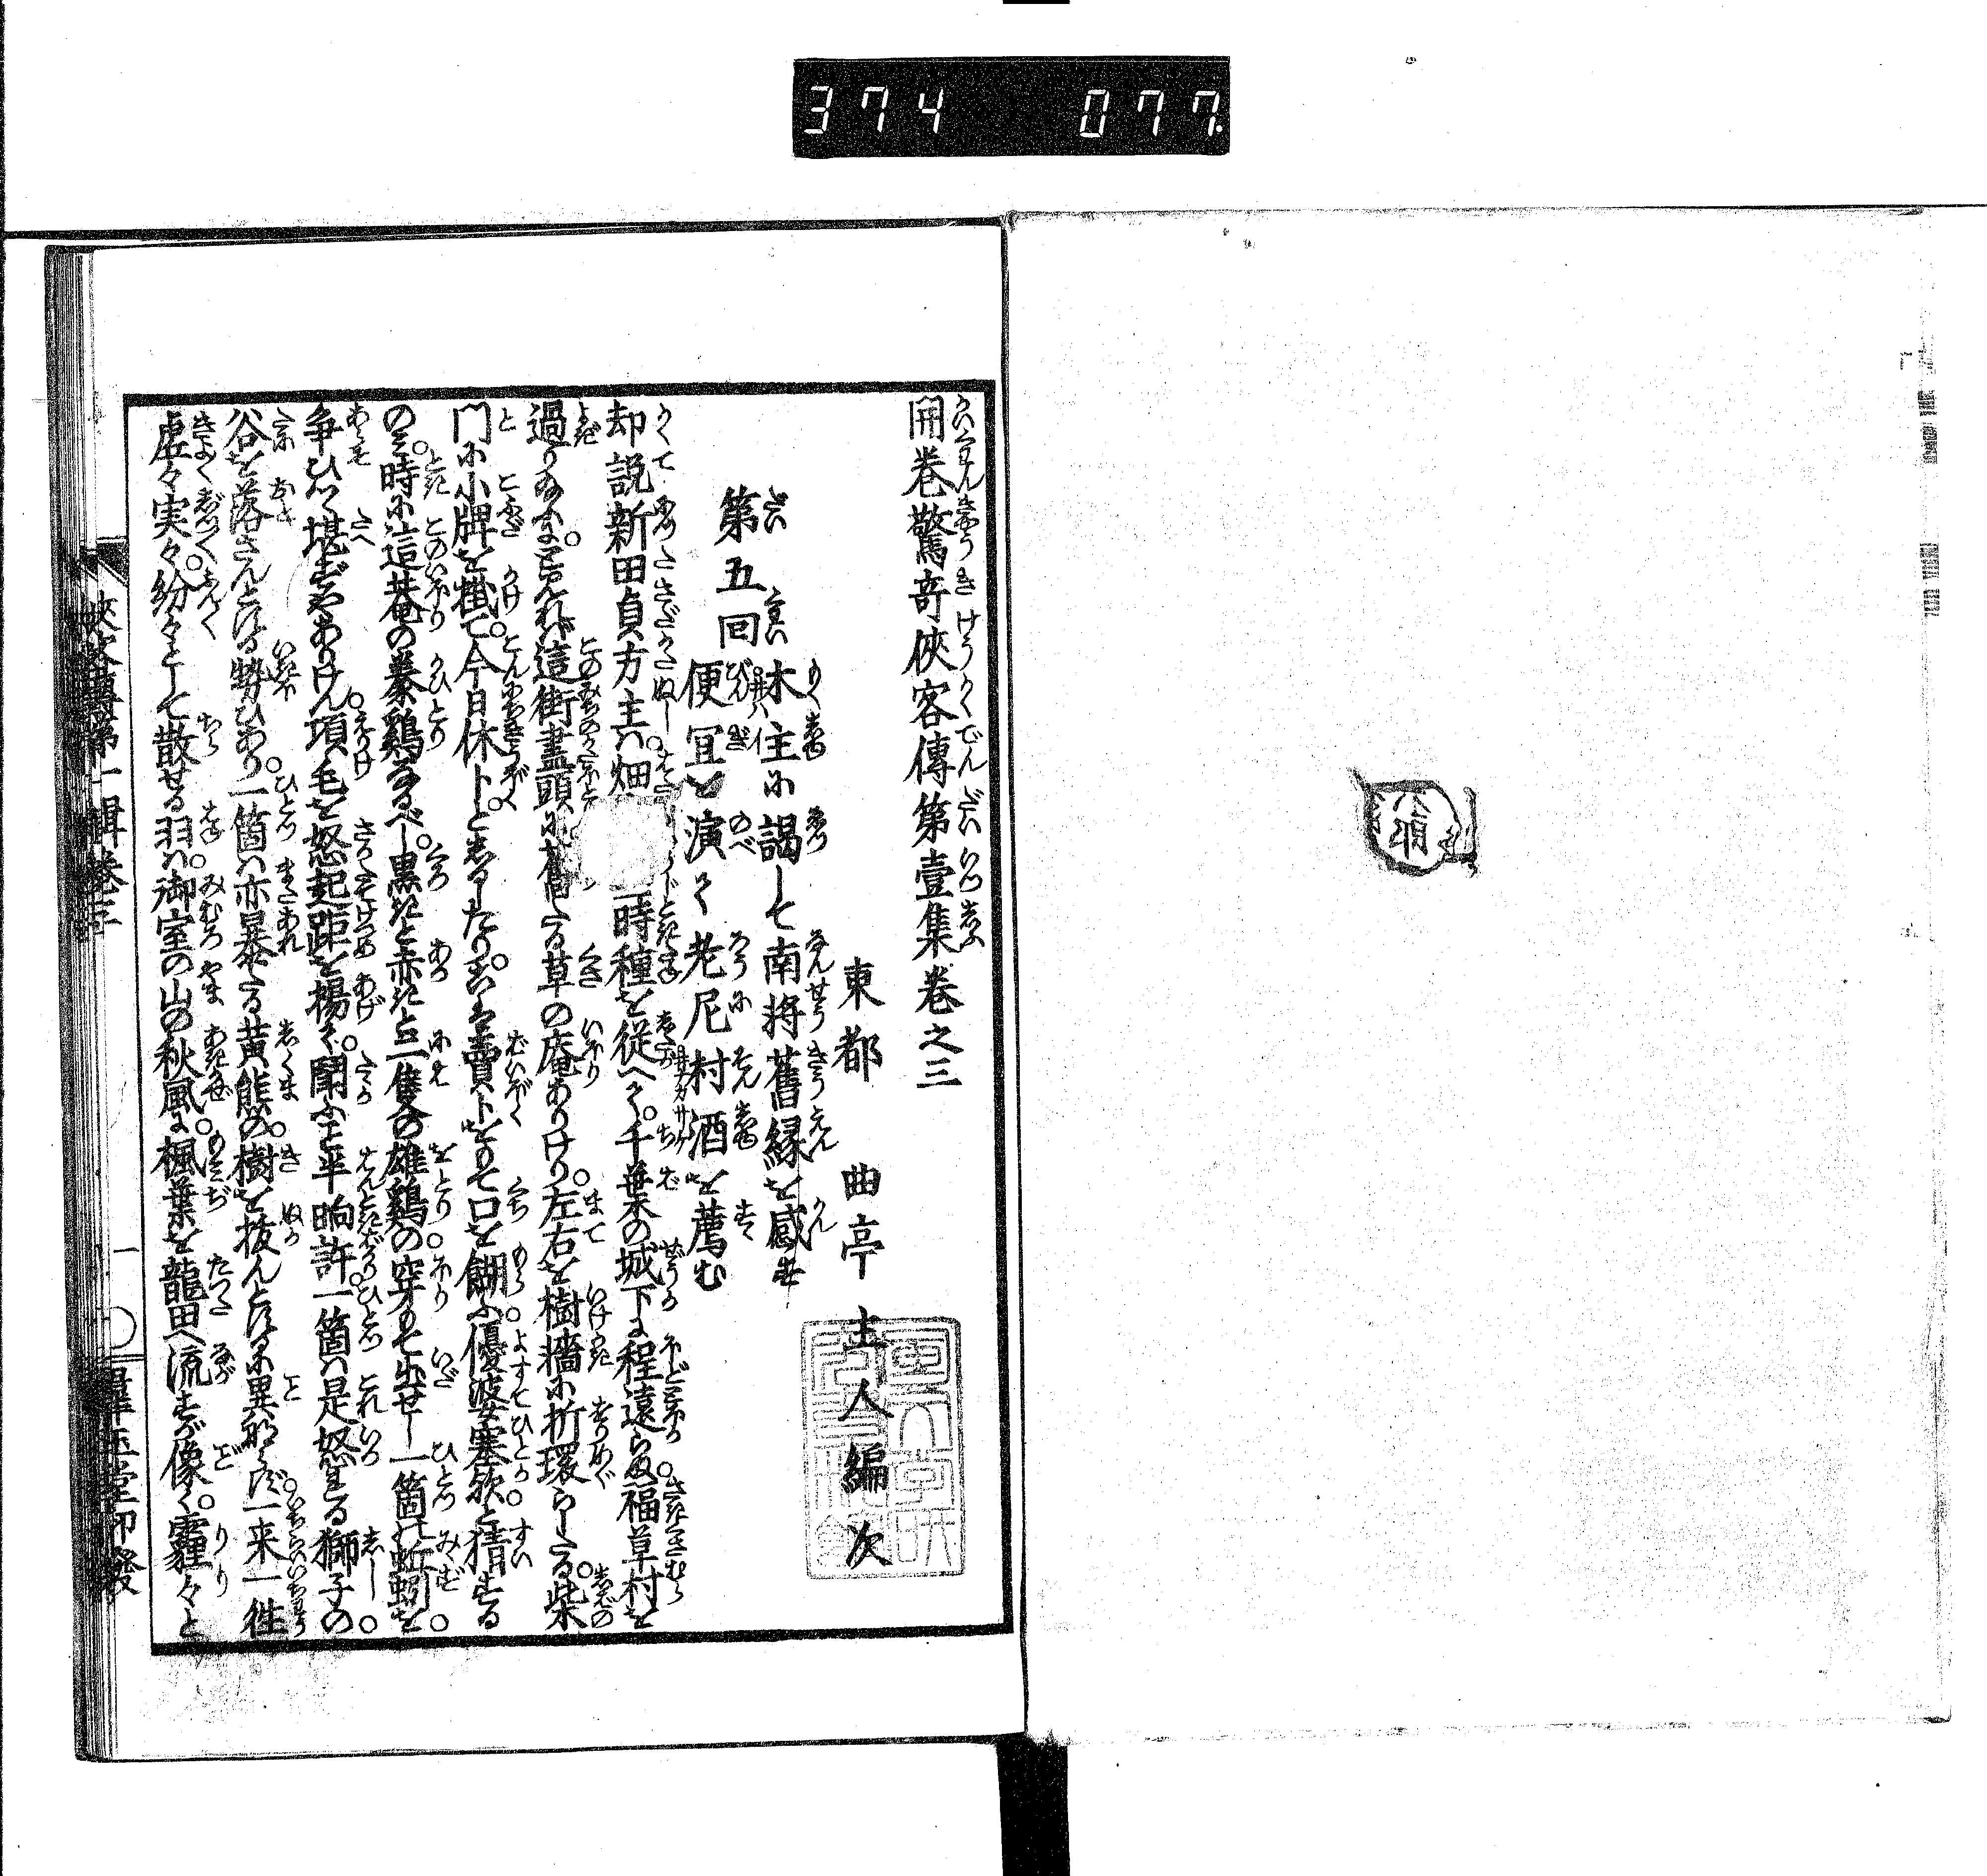 374 077
開巻驚奇俠客傳第壹集巻之三
東都 曲亭主人編次
第五回
木主に謁して南将舊縁を感ず
便冝を演て老尼村酒を薦む
却説新田貞方主ハ畑 時種を従へて。千葉の城下に程遠らぬ福草村を
過りぬるに。とある這街盡頭に 草の庵ありけり。左右を樹墻に折環らしたる。柴
門に小牌を掛て。今日休卜としるしたり。こハ賣卜をもて口を餬ふ優婆塞歟と猜する
のミ。時に這菴の豢鶏なるべし。黒きと赤きと二隻の雄鶏の穿もて出せし一箇の蚯蚓を
争ひつゝ堪ずやありけん。項毛を怒起距を揚て。鬪ふこと半晌許。一箇ハ是怒れる獅子の
谷を落さんとする勢ひあり。一箇ハ亦暴たる黄熊の。樹を抜んとするに異ならず。一来一徃
虚々実々。紛々として散せる羽ハ。御室の山の秋風に楓葉を龍田へ流すが像く。靃々と
俠客傳第一輯巻三
一
群玉堂印發